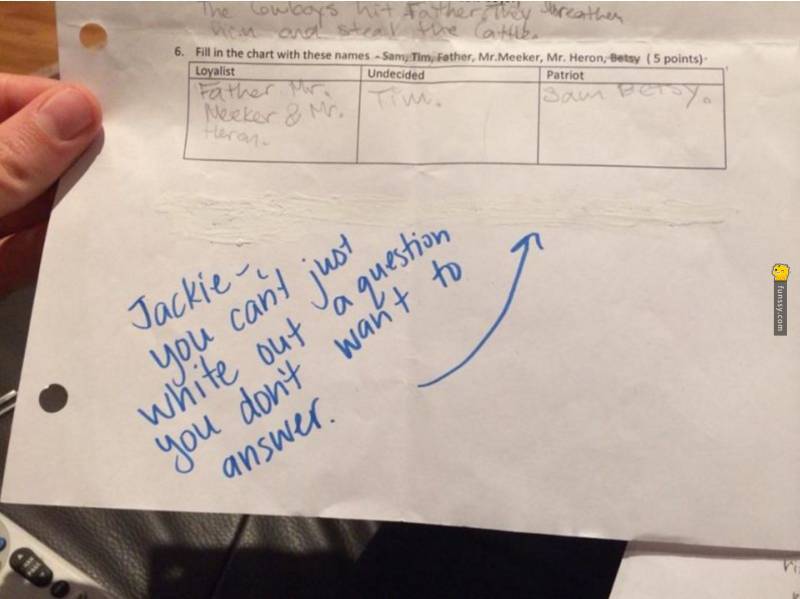 The Cowboys hit Father, they threathen
him and steal the Cattle.
6. Fill in the chart with these names - Sam, Tim, Father, Mr.Meeker, Mr. Heron, Betsy ( 5 points)
Loyalist Undecided Patriot
Father Mr. Tim. Sam Betsy.
Meeker & Mr.
Heron.
Jackie -
you can't just
white out a question
you don't want to
answer.
funssy.com